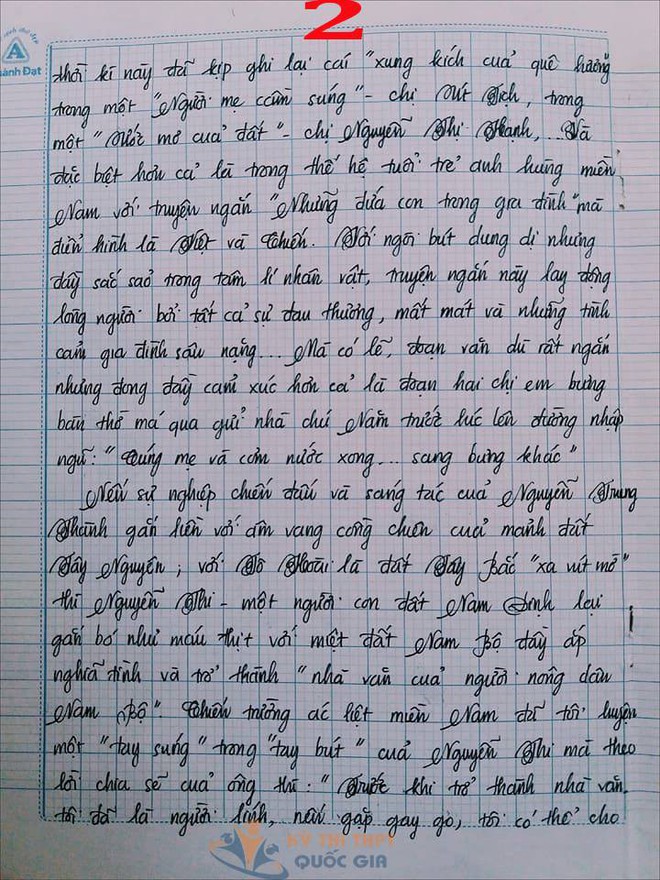 2
A
ành Đạt
thời kì này đã kịp ghi lại cái "xung kích của quê hương
trong một "Người mẹ cầm súng" - chị Út Tịch, trong
một "Ước mơ của đất" - chị Nguyễn Thị Hạnh,... Và
đặc biệt hơn cả là trong thế hệ tuổi trẻ anh hùng miền
Nam với truyện ngắn "Những đứa con trong gia đình" mà
điển hình là Việt và Chiến. Với ngòi bút dung dị nhưng
đầy sắc sảo trong tâm lí nhân vật, truyện ngắn này lay động
lòng người bởi tất cả sự đau thương, mất mát và những tình
cảm gia đình sâu nặng... Mà có lẽ, đoạn văn dù rất ngắn
nhưng đong đầy cảm xúc hơn cả là đoạn hai chị em bưng
bàn thờ má qua gửi nhà chú Năm trước lúc lên đường nhập
ngũ: "Cúng mẹ và cơm nước xong... sang bưng khác"
Nếu sự nghiệp chiến đấu và sáng tác của Nguyễn Trung
Thành gắn liền với âm vang cồng chiên của mảnh đất
Tây Nguyên; với Tô Hoài là đất Tây Bắc "xa vút mờ"
thì Nguyễn Thi - một người con đất Nam Định lại
gắn bó như máu thịt với miệt đất Nam Bộ đầy ắp
nghĩa tình và trở thành "nhà văn của người nông dân
Nam Bộ". Chiến trường ác liệt miền Nam đã tôi luyện
một "tay súng" trong "tay bút" của Nguyễn Thi mà theo
lời chia sẽ của ông thì: "Trước khi trở thành nhà văn,
tôi đã là người lính, nếu gặp gay go, tôi có thể cho
KỲ THI THPT
QUỐC GIA